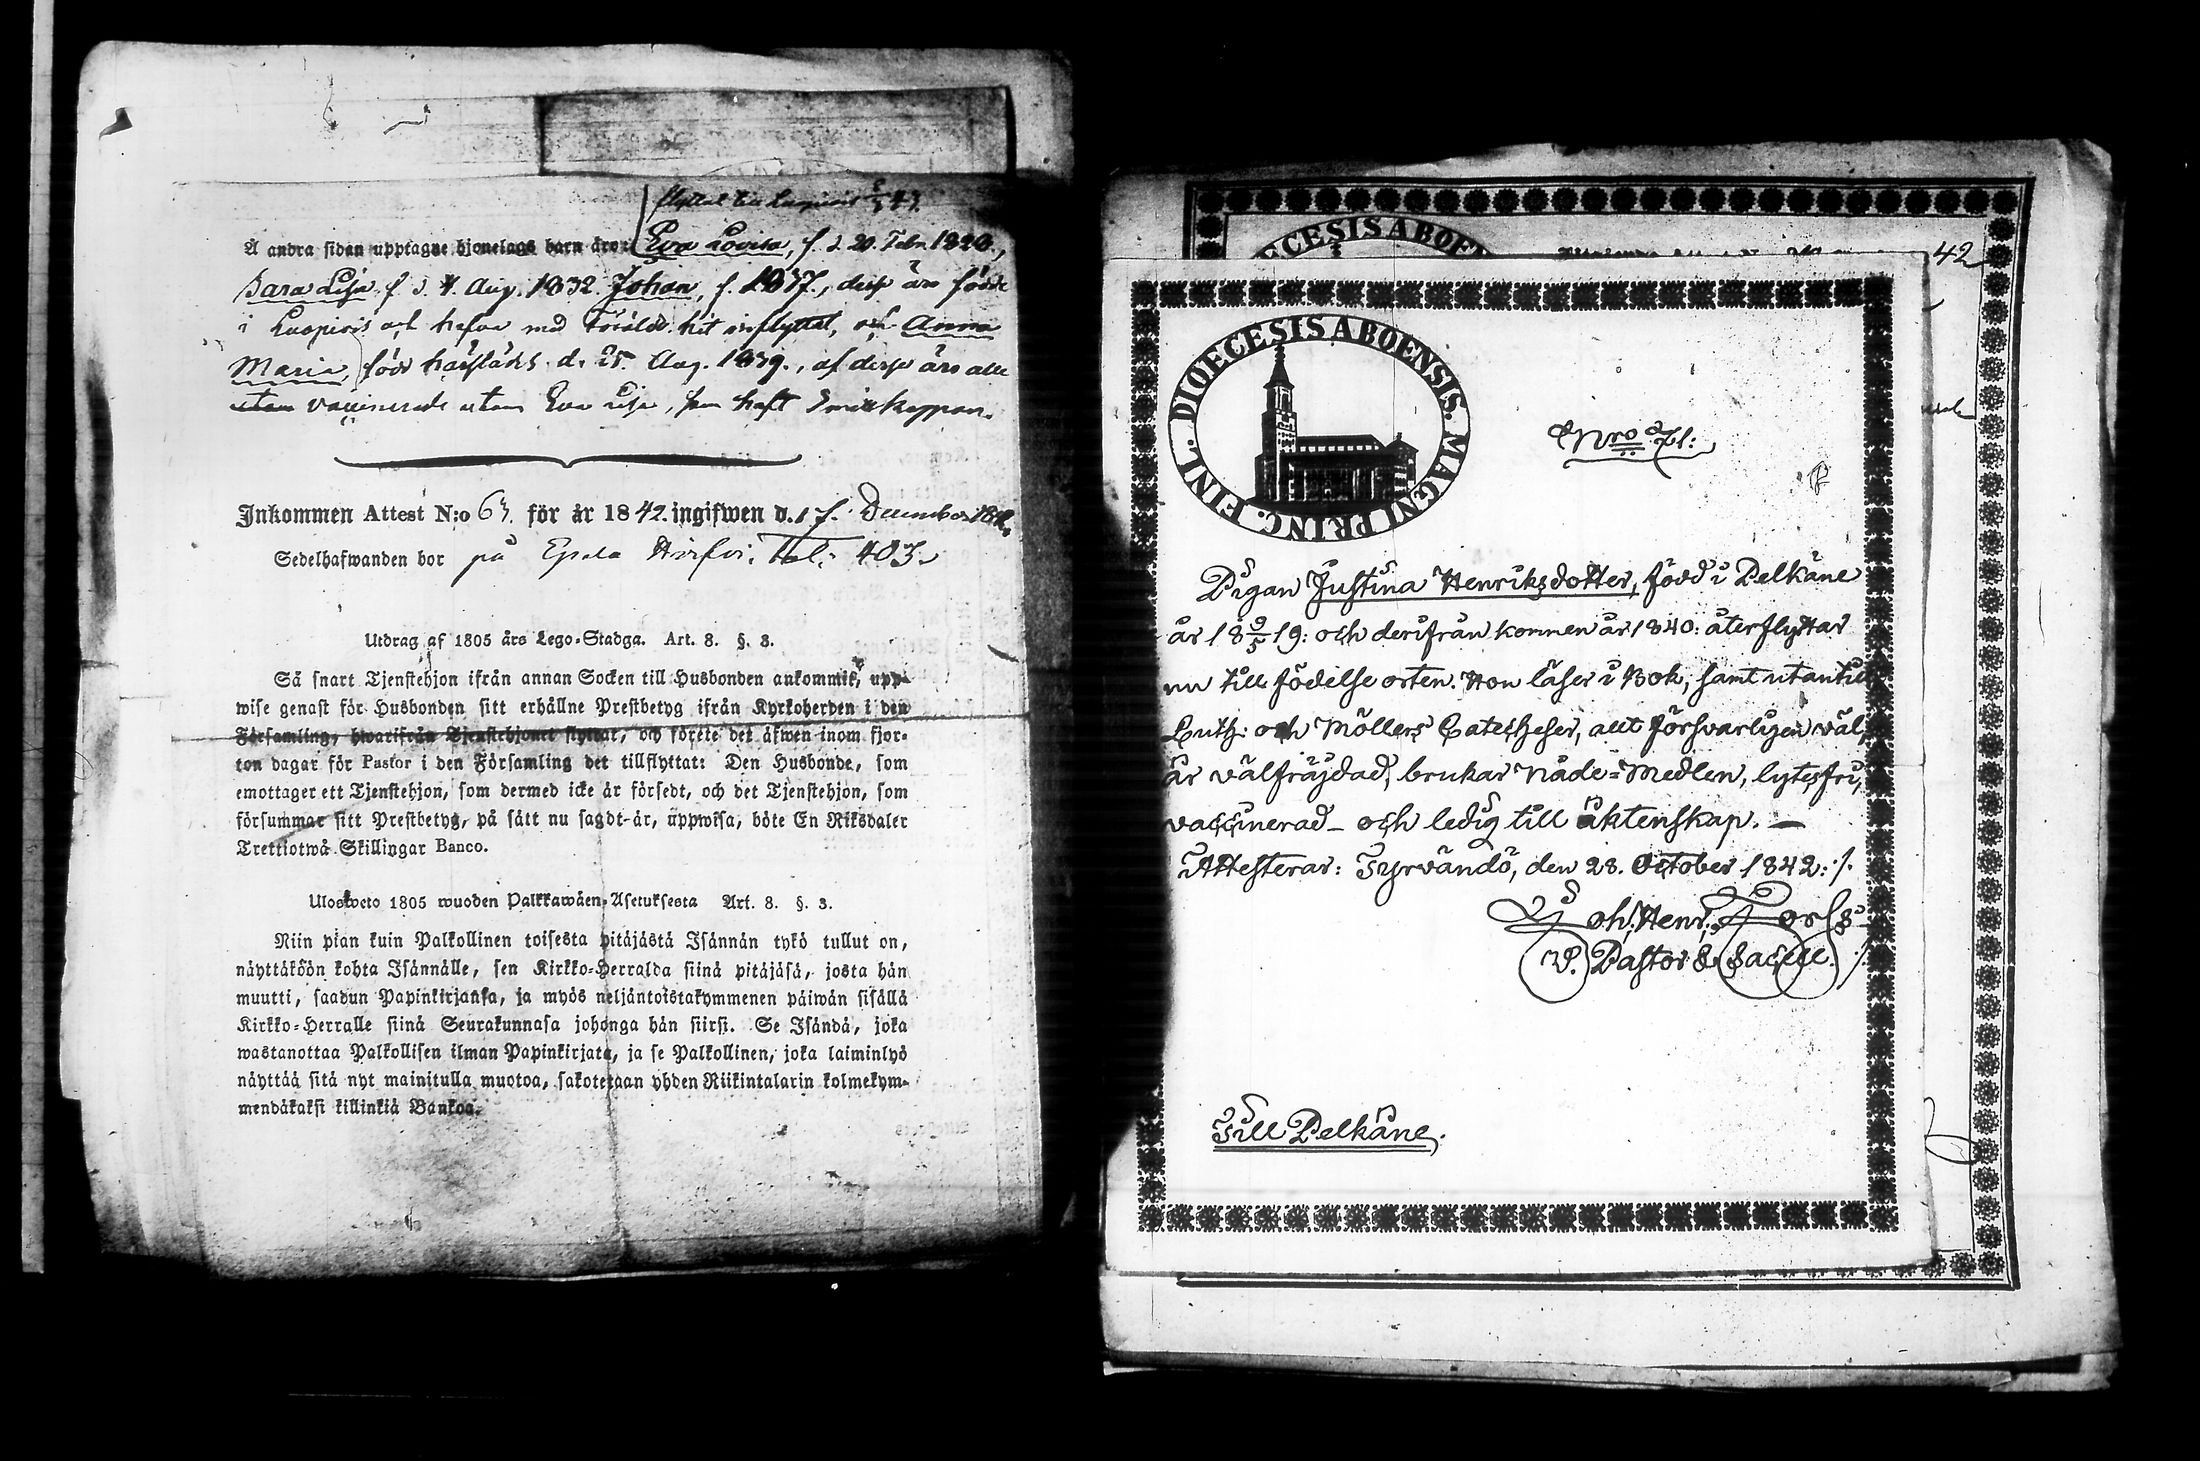 flyttat till Luopiois 2/3 43.
Å andra sidan upptagne hjonelags barn äro: Eva Lovisa, f. d. 20. Febr. 1828.,
Sara Lisa f. d. 4. Aug. 1832. Johan, f. 1837., desse äro födde
i Luopiois och hafva med Föräldr. hit inflyttat, och Anna
Maria, född härstädes d. 25. Aug. 1839., af desse äro alla
vaccinerade utom Eva Lisa, som haft Smittkoppor.
Inkommen Attest N:o 63. för år 1842. ingifwen d. 17. December 1842.
Sedelhafwanden bor på Epaala Hirfvi. Tal. 403.
Utdrag af 1805 års Lego-Stadga. Art. 8. §. 3.
Så snart Tjenstehjon ifrån annan Socken till Husbonden ankommit, upp-
wise genast för Husbonden sitt erhållne Prestbetyg ifrån Kyrkoherden i den
Församling, hwarifrån Tjenstehjonet flyttar, och förete det äfwen inom fjor-
ton dagar för Pastor i den Församling det tillflyttat: Den Husbonde, som
emottager ett Tjenstehjon, som dermed icke är försedt, och det Tjenstehjon, som
försummar sitt Prestbetyg, på sätt nu sagdt är, uppwisa, böte En Riksdaler
Trettiotwå Skillingar Banco.
Ulosweto 1805 wuoden Palkkawäen-Asetuksesta Art. 8. §. 3.
Niin pian kuin Palkollinen toisesta pitäjästä Isännän tykö tullut on,
näyttäköön kohta Isännälle, sen Kirkko-Herralda siinä pitäjäsä, josta hän
muutti, saadun Papinkirjansa, ja myös neljäntoistakymmenen päiwän sisällä
Kirkko-Herralle siinä Seurakunnasa johonga hän siirsi. Se Isändä, joka
wastanottaa Palkollisen ilman Papinkirjata, ja se Palkollinen, joka laiminlyö
näyttää sitä nyt mainitulla muotoa, sakotetaan yhden Riikintalarin kolmekym-
mendäkaksi killinkiä Bankoa.
42
DIOECESIS ABOENSIS. MAGNI PRINC. FINL.
Nro 71:
Pigan Justina Henriksdotter, född i Pelkäne
år 18 9/5 19: och derifrån kommen år 1840: återflyttar
nu till födelse orten. Hon läser i Bok, samt utantill
Luth: och Möllers Catecheser, allt försvarligen väl,
är välfräjdad, brukar Nåde=Medlen, lytesfri,
vaccinerad – och ledig till äktenskap. —
Attesterar: Tyrvändö, den 28. October 1842:/.
Joh: Henr: Fors
V. Pastor & Sacell. /.
Till Pelkäne.